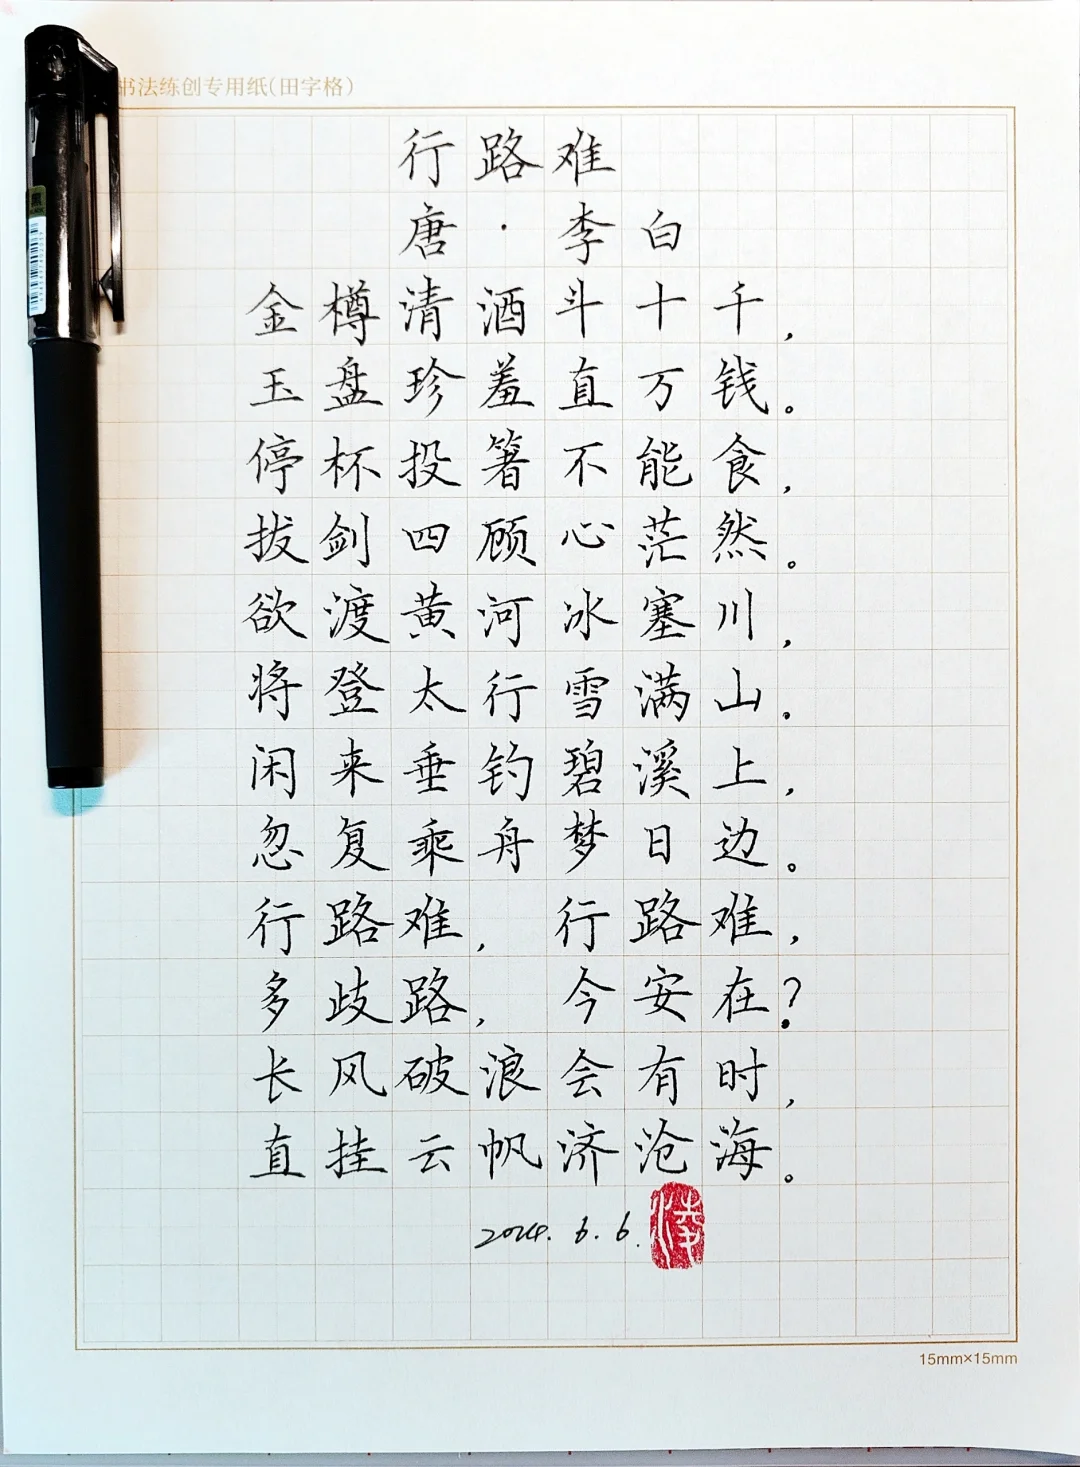 书法练创专用纸(田字格)
行路难
唐·李白
金樽清酒斗十千,
玉盘珍羞直万钱。
停杯投箸不能食,
拔剑四顾心茫然。
欲渡黄河冰塞川,
将登太行雪满山。
闲来垂钓碧溪上,
忽复乘舟梦日边。
行路难, 行路难,
多歧路, 今安在?
长风破浪会有时,
直挂云帆济沧海。
2024.6.6.
15mm×15mm